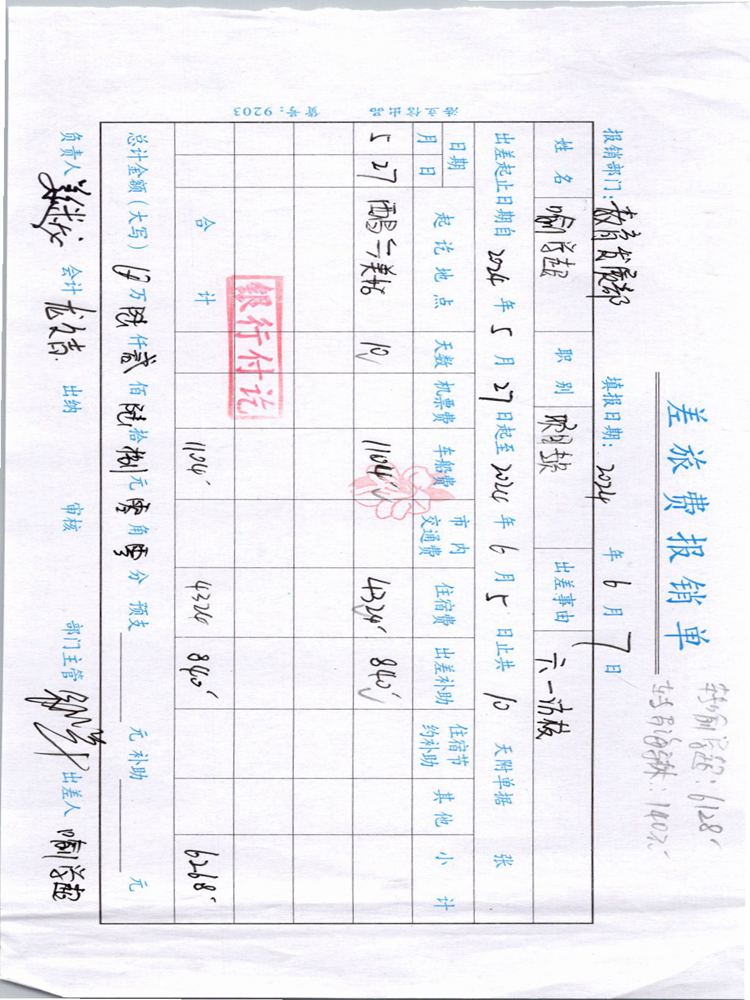 差旅费报销单
报销部门：教育发展部 填报日期：2024 年 6 月 7 日
姓名 喻学超 职别 出差事由 六一访校
出差起止日期自 2024 年 5 月 27 日起至 2024 年 6 月 5 日止共 10 天附单据 张
日期 起讫地点 天数 机票费 车船费 市内交通费 住宿费 出差补助 住宿节约补助 其他 小计
月 日
5 27 10 1104 4324 840
银行付讫
合计 1104 4324 840 6268
总计金额（大写） 万 陆 仟 贰 佰 陆 拾 捌 元 零 角 零 分 预支 元 补助 元
负责人 会计 出纳 审核 部门主管 出差人 喻学超
喻学超：6128
：140元
货号：9203